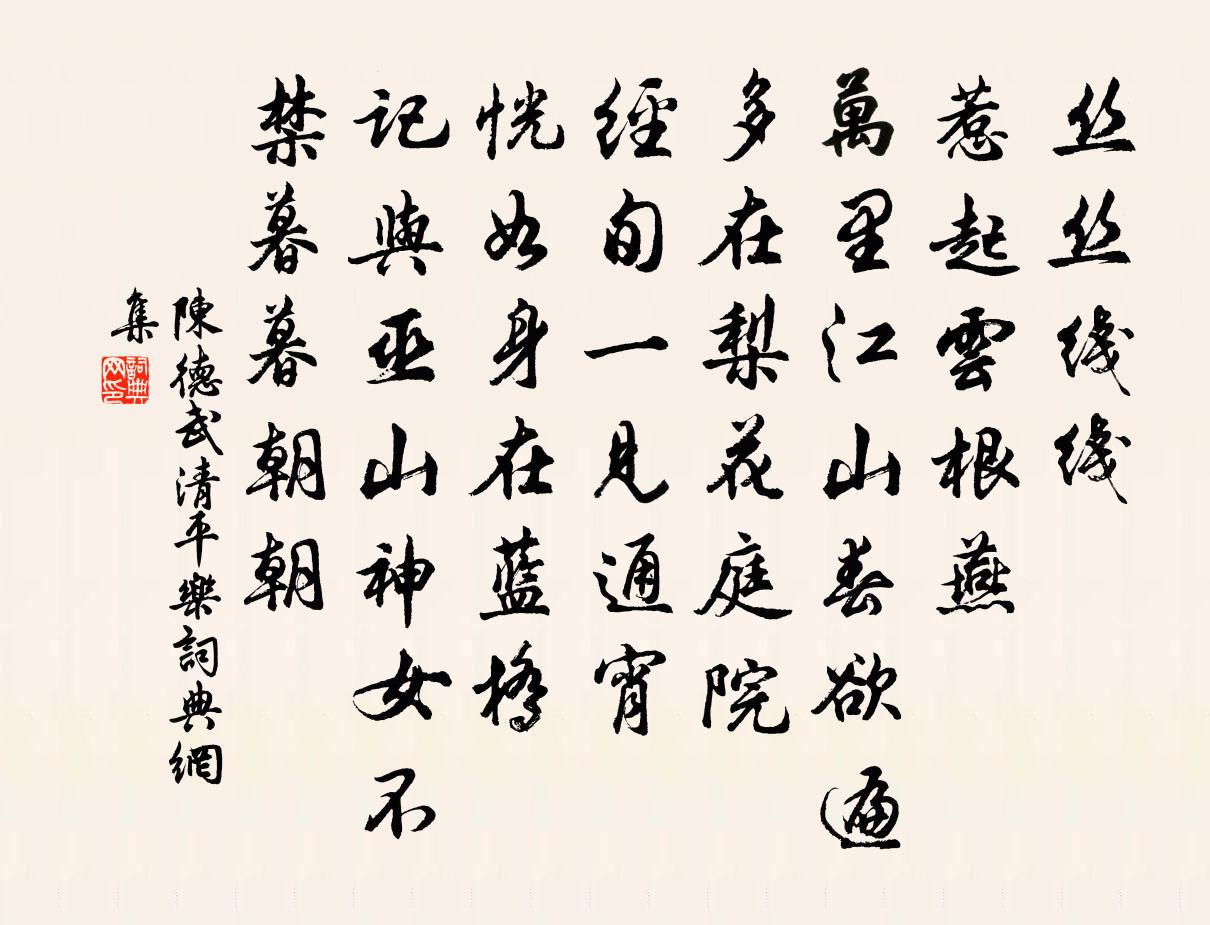 丝丝线线
惹起雲根燕
萬里江山春欲遍
多在梨花庭院
經旬一見通宵
恍如身在藍橋
記與巫山神女不
禁暮暮朝朝
陳德武清平樂詞典網
集
詞典
网印